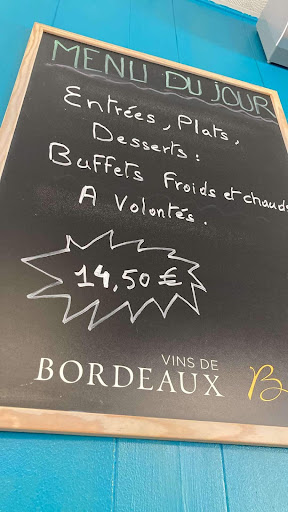 MENU DU JOUR
Entrées, Plats,
Desserts :
Buffets froids et chauds
A Volontés.
14,50 €
VINS DE
BORDEAUX
B